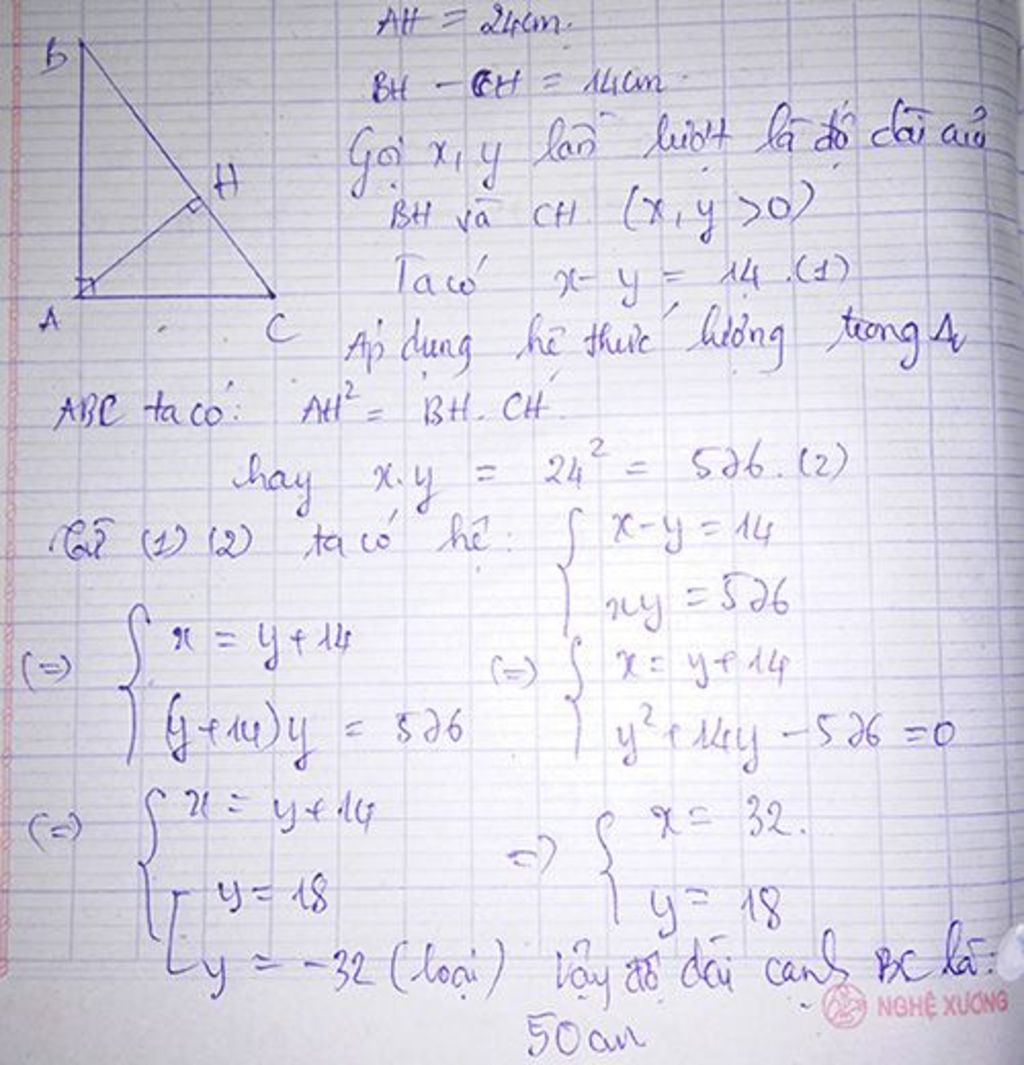 AH = 24cm.
BH - CH = 14cm.
B
H
A
C
Gọi x, y lần lượt là độ dài của
BH và CH. (x, y >0)
Ta có x - y = 14. (1)
Áp dụng hệ thức lượng trong Δv
ABC ta có: AH² = BH. CH.
hay x.y = 24² = 576. (2)
Từ (1) (2) ta có hệ: { x - y = 14
xy = 576
(=) { x = y + 14
(y+14)y = 576
(=) { x = y + 14
y² + 14y - 576 = 0
(=) { x = y + 14
[ y = 18
y = -32 (loại)
=) { x = 32.
y = 18
Vậy độ dài cạnh BC là:
50cm
NGHỆ XƯƠNG